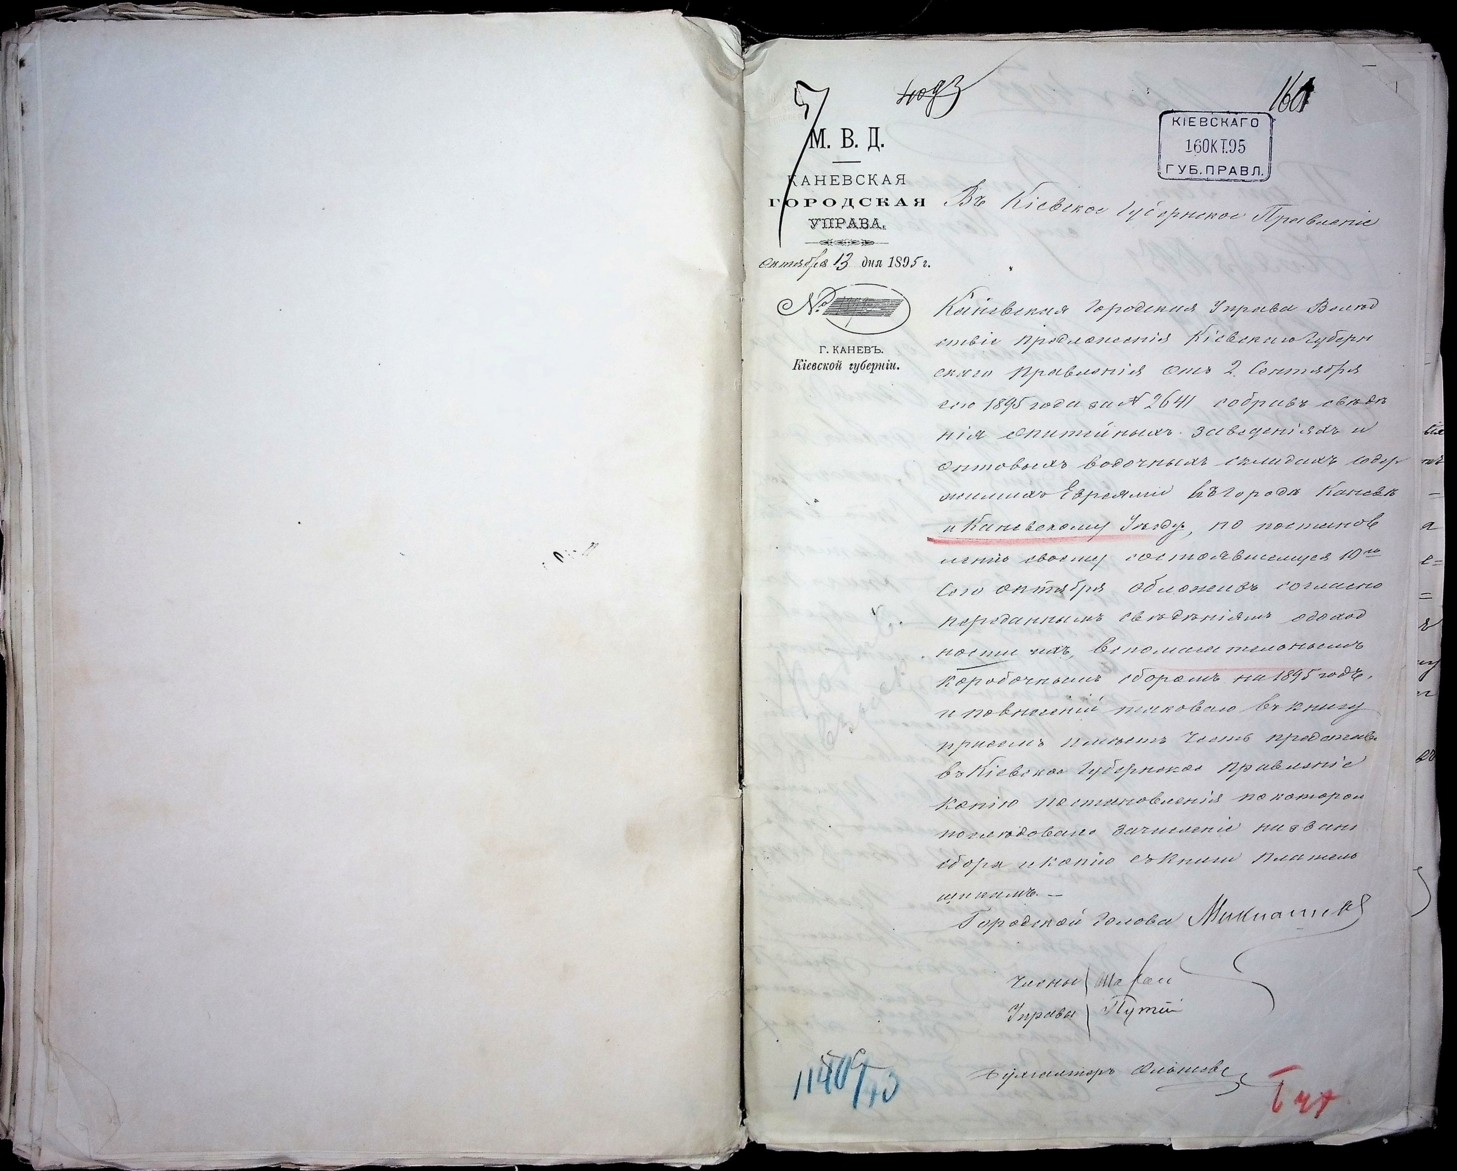 161
М. В. Д.
КАНЕВСКАЯ
ГОРОДСКАЯ
УПРАВА.
Октября 13 дня 1895 г.
№
Г. КАНЕВЪ.
Кіевской губерніи.
КІЕВСКАГО
16ОКТ.95
ГУБ.ПРАВЛ.
Въ Кіевское Губернское Правленіе
Каневская Городская Управа Вслед
ствіе предложенія Кіевскаго Губерн
скаго Правленія отъ 2 Сентября
сего 1895 года за № 2641 собравъ сведе
нія опитейныхъ заведеніяхъ и
оптовыхъ водочныхъ складахъ содер
жимыхъ Евреями въ городе Каневе
и Каневскому Уезду, по постанов
ленію своему состоявшемуся 10го
сего октября обложивъ согласно
переданнымъ сведеніямъ одоход
ности ихъ, вспомагательнымъ
коробочнымъ сборомъ на 1895 годъ,
таковаго въ книгу
имеетъ честь
въ Кіевское Губернское Правленіе
копію постановленія по которой
последовало зачисленіе
сбора и копію съ книги платель
щикамъ.—
Городской Голова
Члены
Управы Путій
Бухгалтеръ